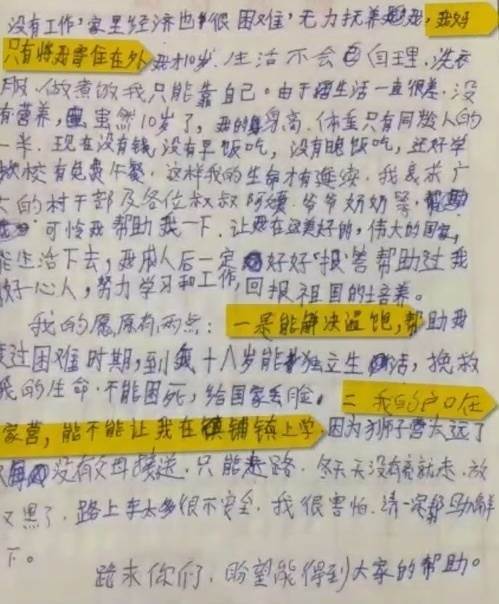 没有工作，家里经济也很困难，无力抚养我，我妈
只有将我寄住在外，我才10岁，生活不会自理，洗衣
服、做煮饭我只能靠自己。由于生活一直很差，没
有营养，虽然10岁了，我的身高、体重只有同龄人的
一半，现在没有钱，没有早饭吃，没有晚饭吃，还好学
校有免费午餐，这样我的生命才有延续。我哀求广
大的村干部及各位叔叔阿姨、爷爷奶奶等，帮助
可怜我帮助我一下，让我在这美好的，伟大的国家，
能生活下去，我成人后一定好好"报"答帮助过我
的好心人，努力学习和工作，回报祖国的培养。
我的愿原有两点：一是能解决温饱，帮助我
度过困难时期，到我十八岁能独立生活，挽救
我的生命，不能困死，给国家丢脸。二我的户口在
家营，能不能让我在镇铺镇上学，因为狮子营太远了
没有父母接送，只能走路，冬天天没有亮就走，放
又黑了，路上车太多很不安全，我很害怕，请一定帮助解
下。
跪求你们，盼望能得到大家的帮助。